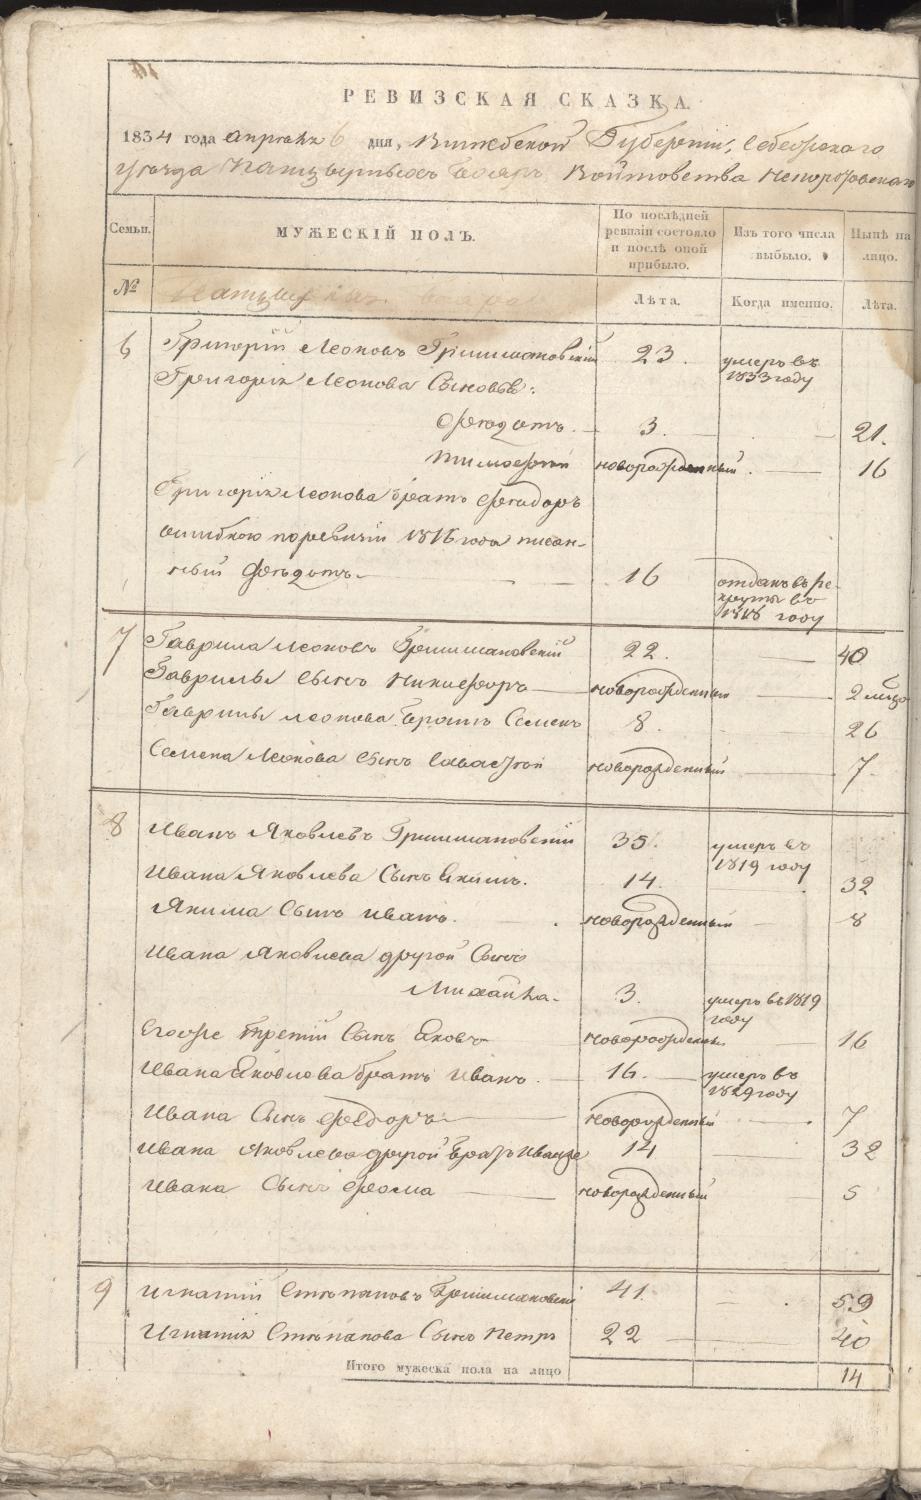 РЕВИЗСКАЯ СКАЗКА.
1834 года апреля 6 дня, Витебской Губернии, Себежского
уезда Панцырныхъ бояръ Войтовства Непоротовскаго
Семьи.
МУЖЕСКІЙ ПОЛЪ.
По послѣдней ревизіи состояло и послѣ оной прибыло.
Изъ того числа выбыло.
Нынѣ на лицо.
№
Панцырныхъ бояръ
Лѣта.
Когда именно.
Лѣта.
6 Григорій Леоновъ Гришмановскій 23. умеръ въ 1833 году
Григорія Леонова Сыновья:
Федотъ. 3. 21.
Тимофей новорожденный 16
Григорія Леонова братъ Федоръ
ошибкою по ревизіи 1816 года писан-
ный Федотъ 16 отданъ въ ре-
круты въ
1818 году
7 Гаврила Леоновъ Гришмановскій 22. 40
Гаврилы сынъ Никифоръ новорожденный 2
Гаврилы Леонова братъ Семенъ 8. 26
Семена Леонова сынъ новорожденный 7.
8 Иванъ Яковлевъ Гришмановскій 35. умеръ въ
1819 году
Ивана Яковлева Сынъ Екимъ. 14. 32
Якима Сынъ Иванъ. новорожденный 8
Ивана Яковлева другой Сынъ
Михайла. 3. умеръ въ 1819
году
Егоже третій Сынъ Яковъ новорожден. 16
Ивана Яковлева братъ Иванъ. 16. умеръ въ
1829 году
Ивана Сынъ Федоръ новорожденный 7
Ивана Яковлева другой братъ Иванъ же 14 32
Ивана Сынъ Фома новорожденный 5
9 Игнатій Степановъ Гришмановскій 41. 59
Игнатія Степанова Сынъ Петръ 22 40
Итого мужеска пола на лицо 14